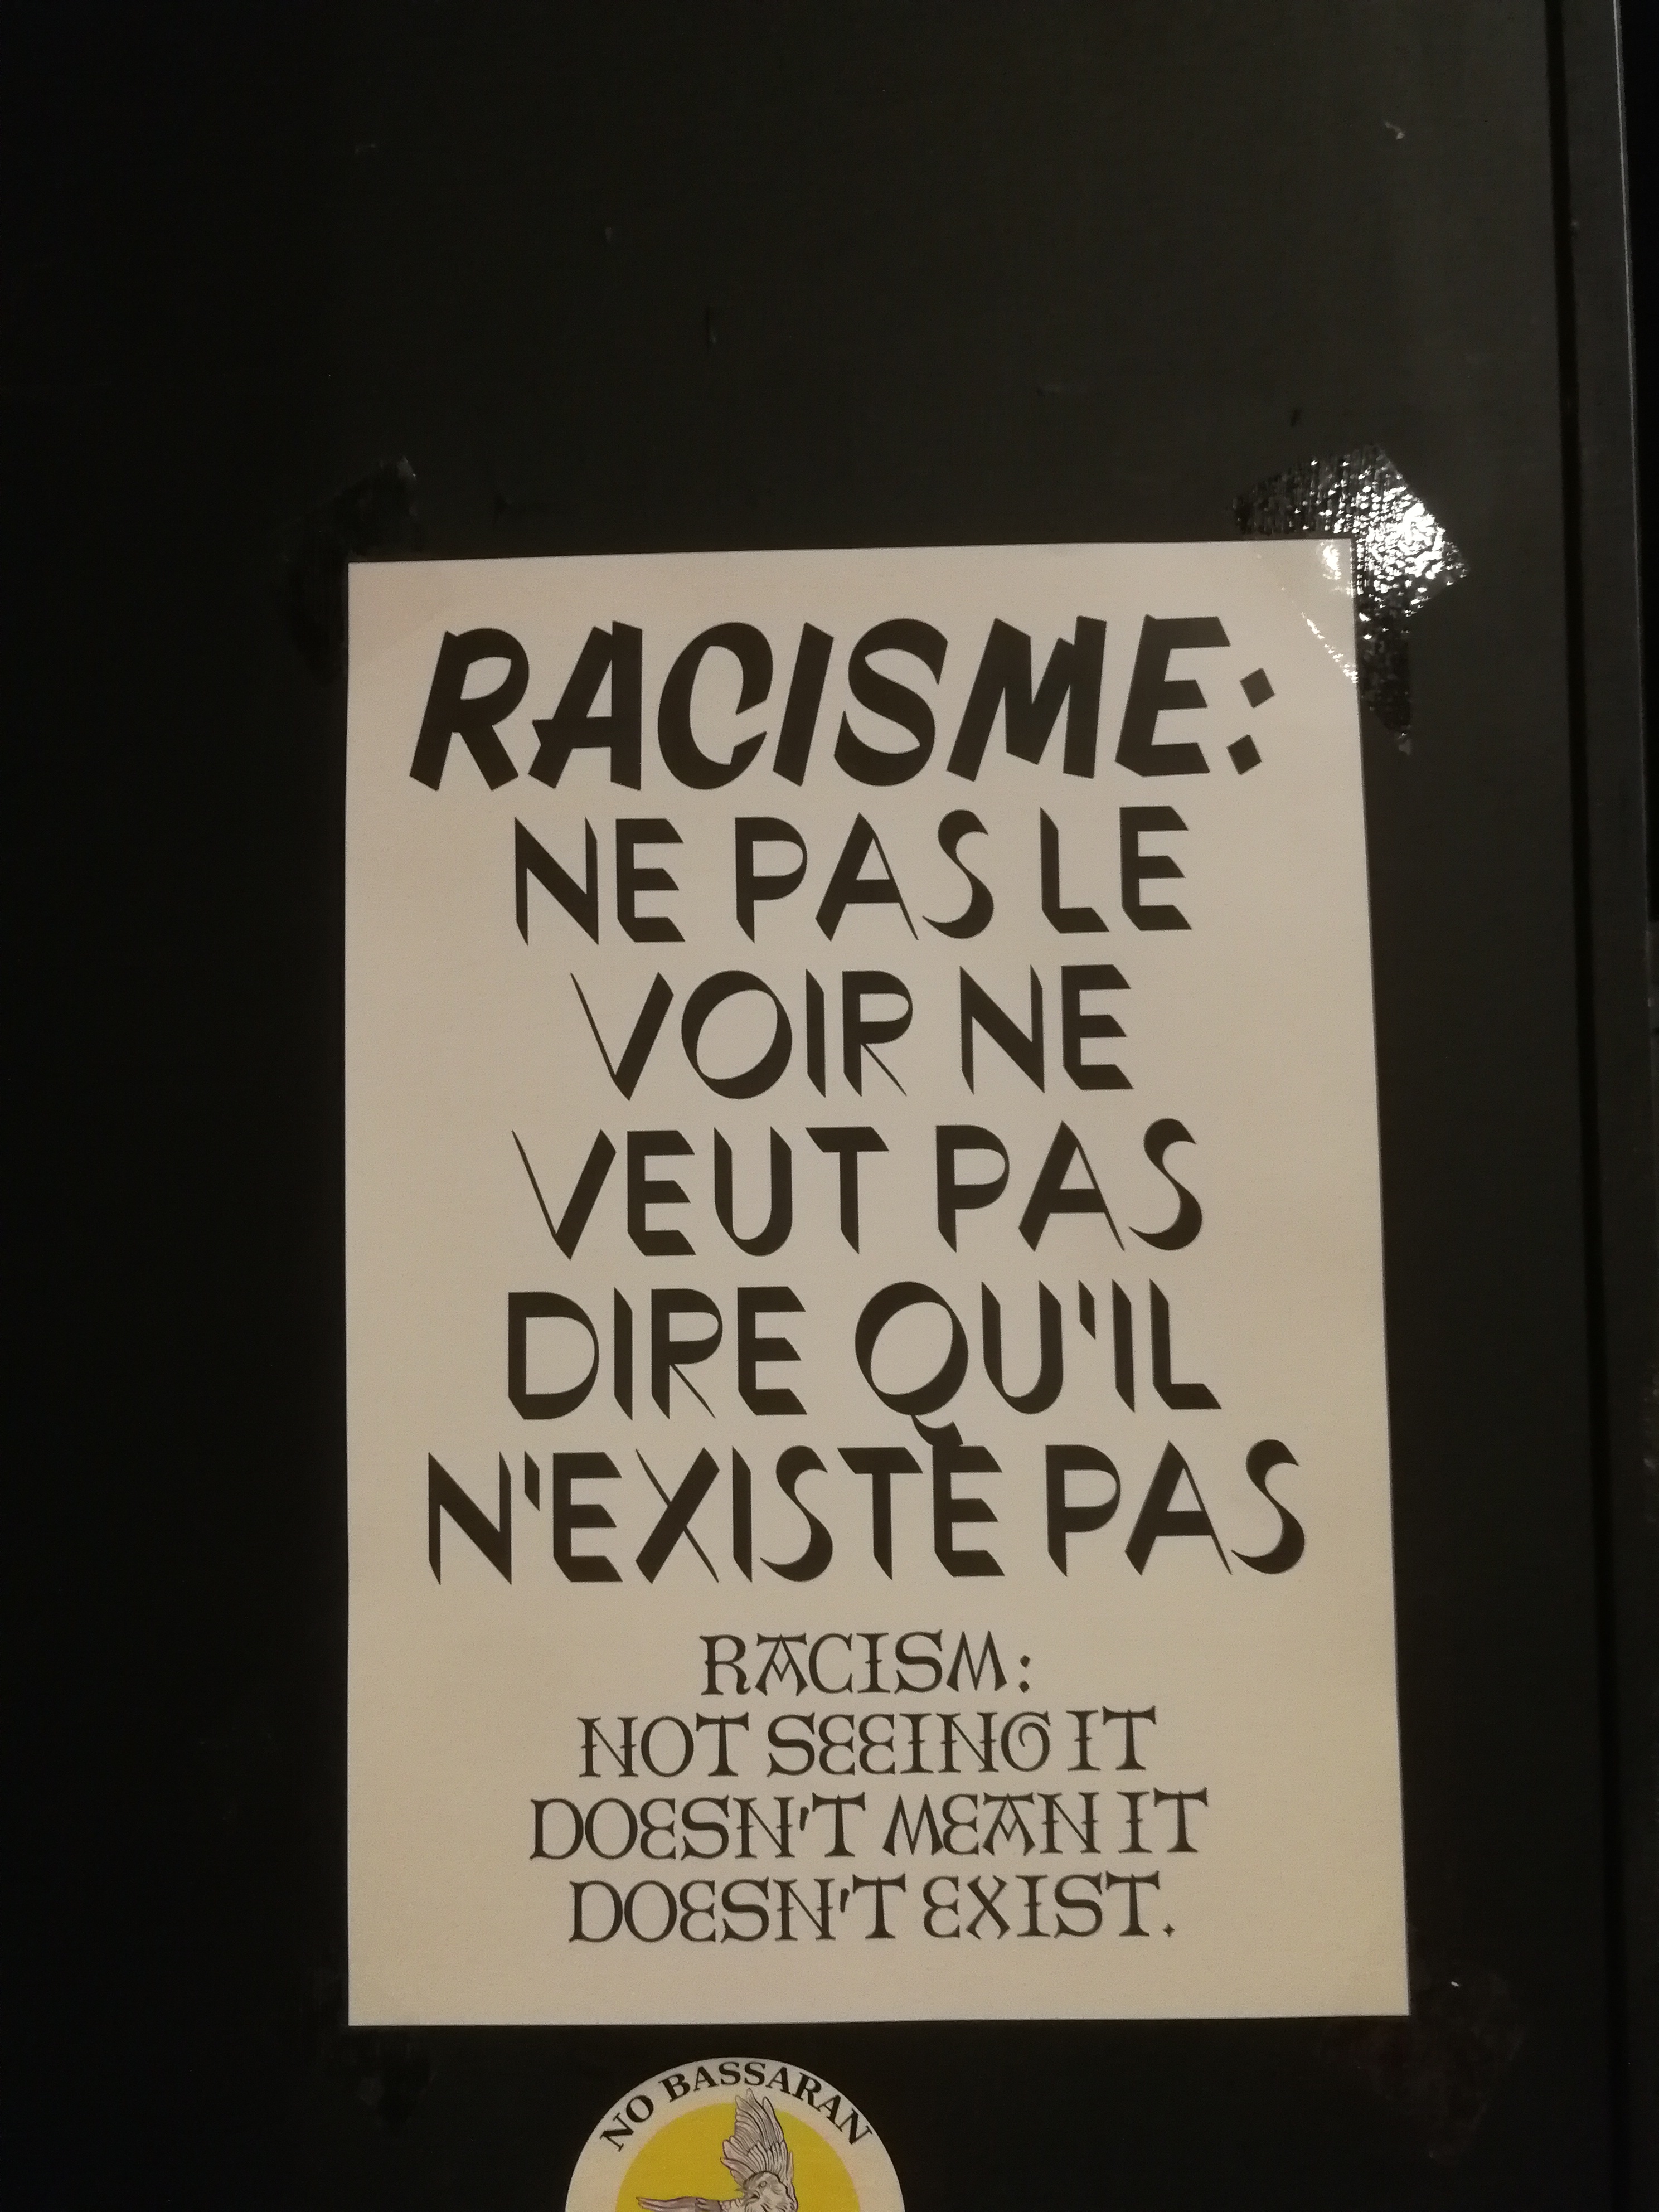 RACISME:
NE PAS LE
VOIR NE
VEUT PAS
DIRE QU'IL
N'EXISTE PAS
RACISM:
NOT SEEING IT
DOESN'T MEAN IT
DOESN'T EXIST.
NO BASSARAN